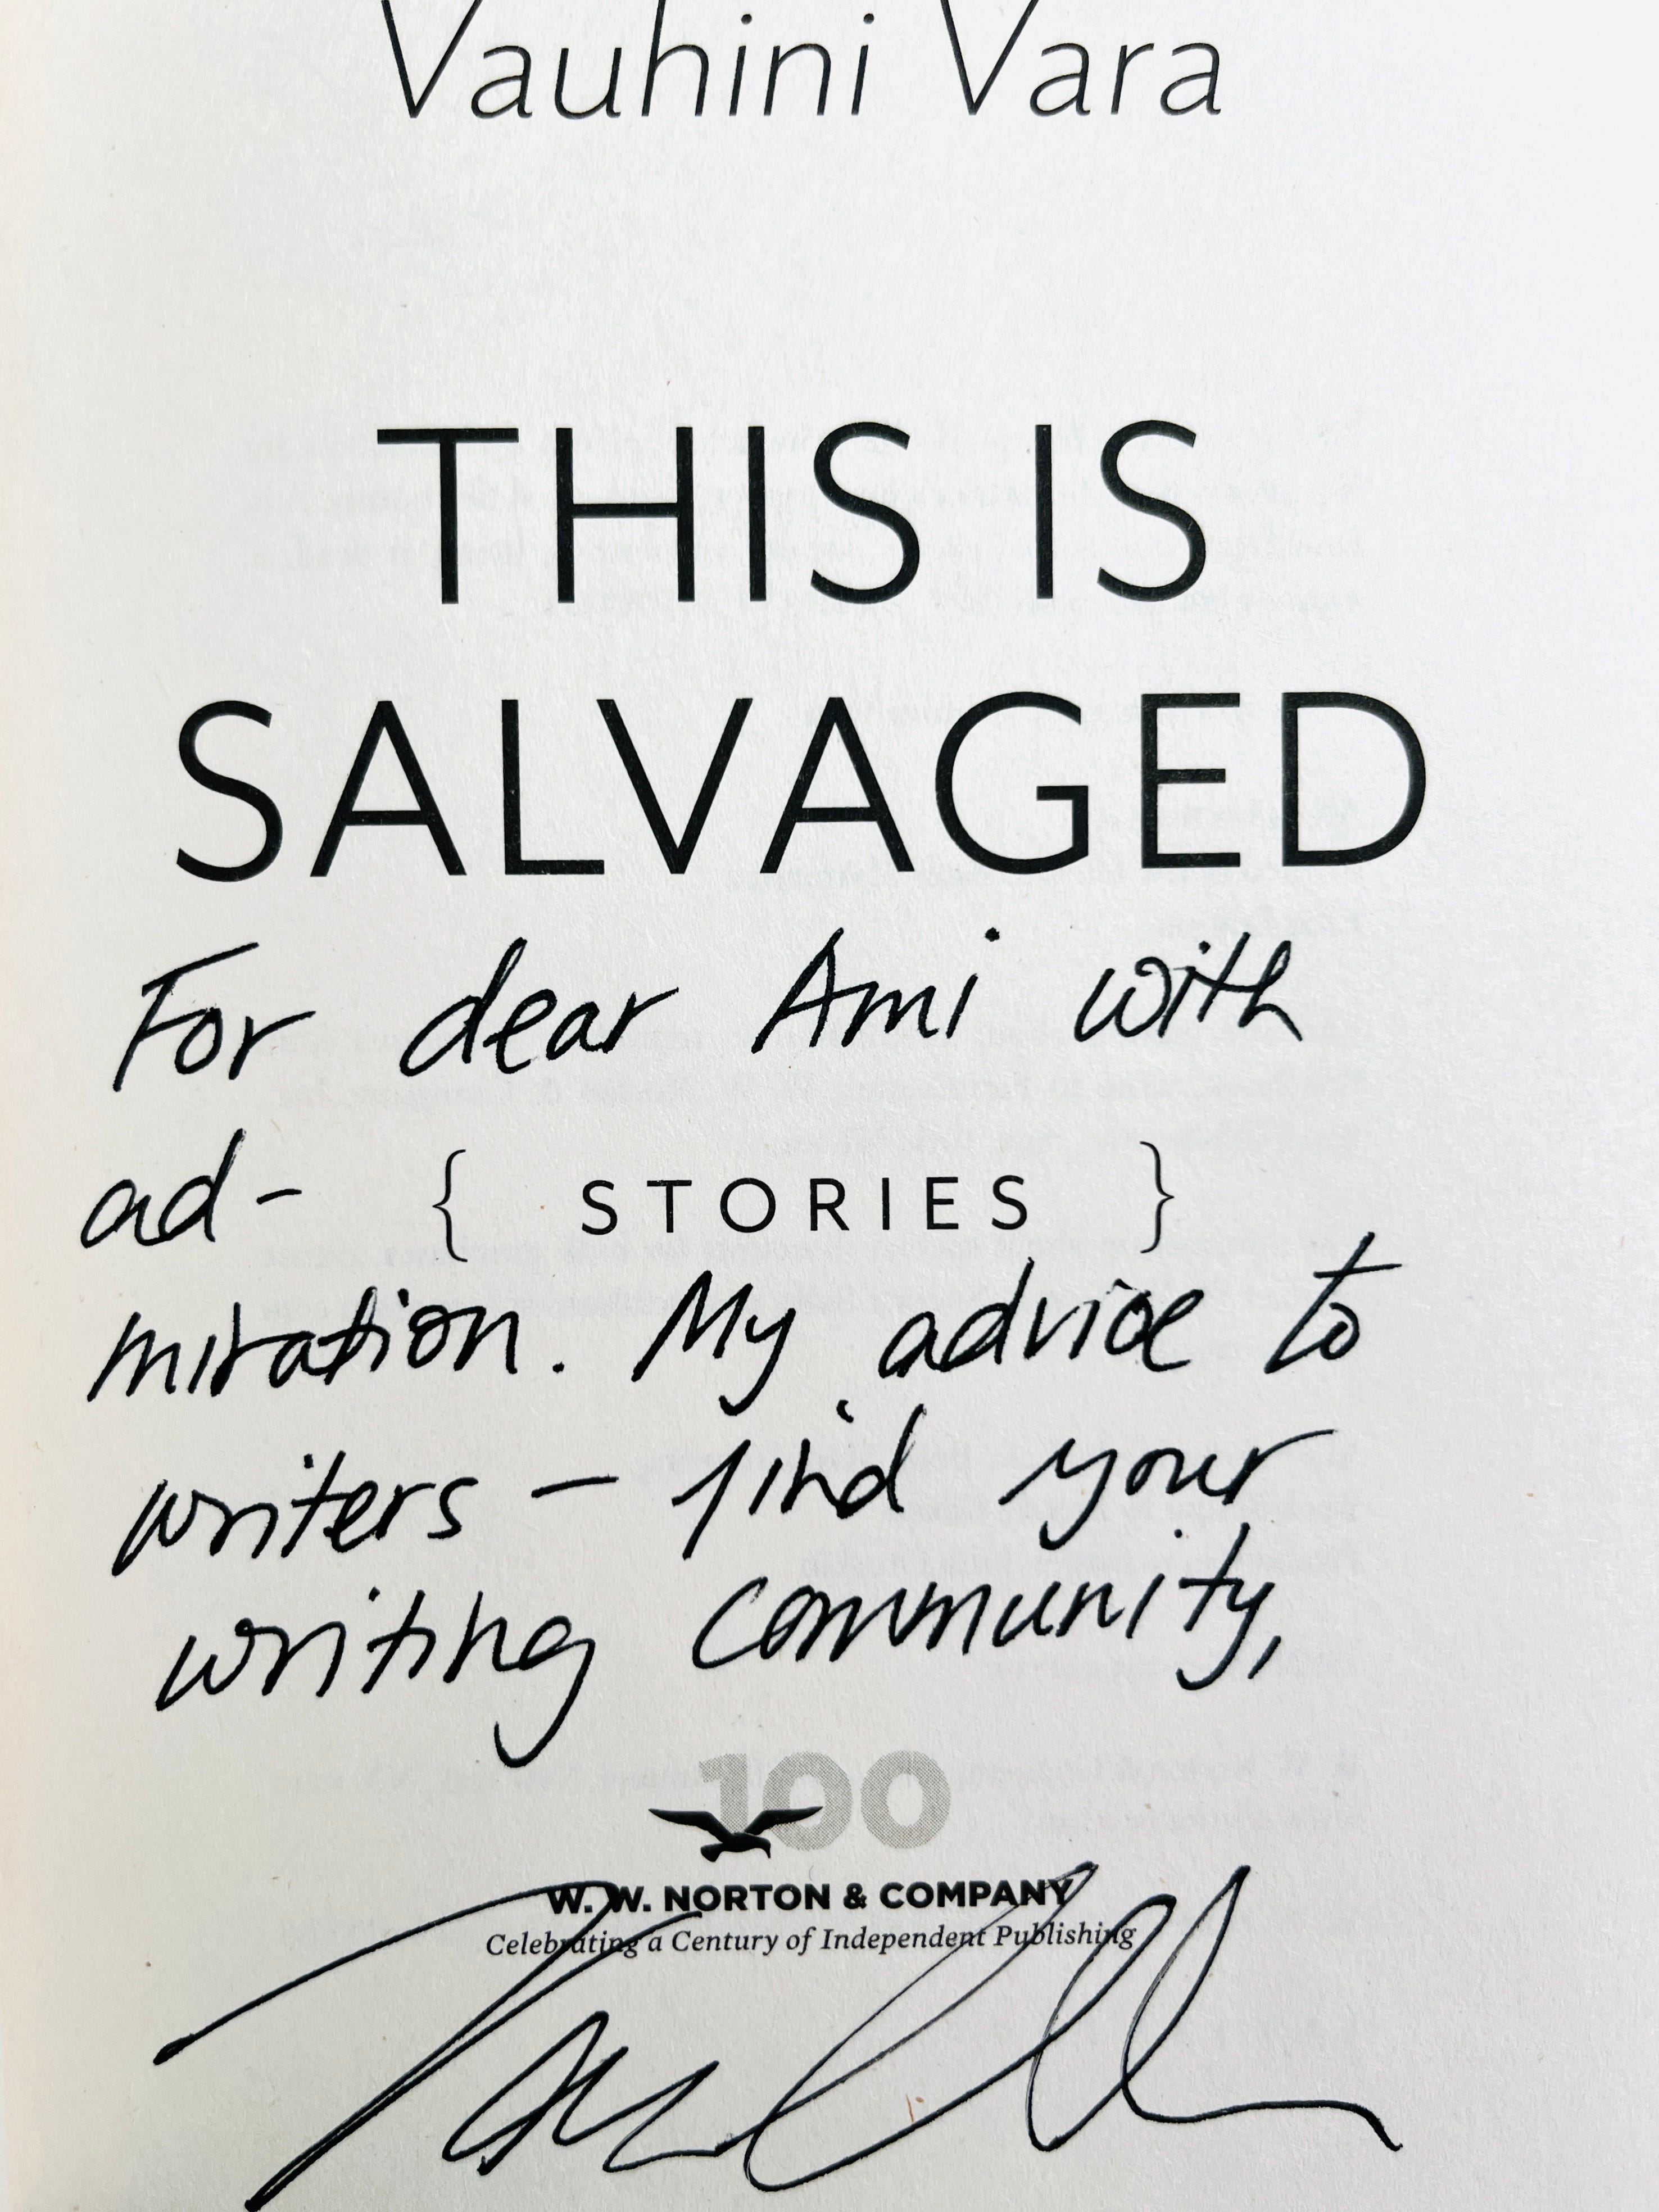 Vauhini Vara
THIS IS
SALVAGED
For dear Ami with
ad- { STORIES }
miration. My advice to
writers – find your
writing community,
100
W. W. NORTON & COMPANY
Celebrating a Century of Independent Publishing